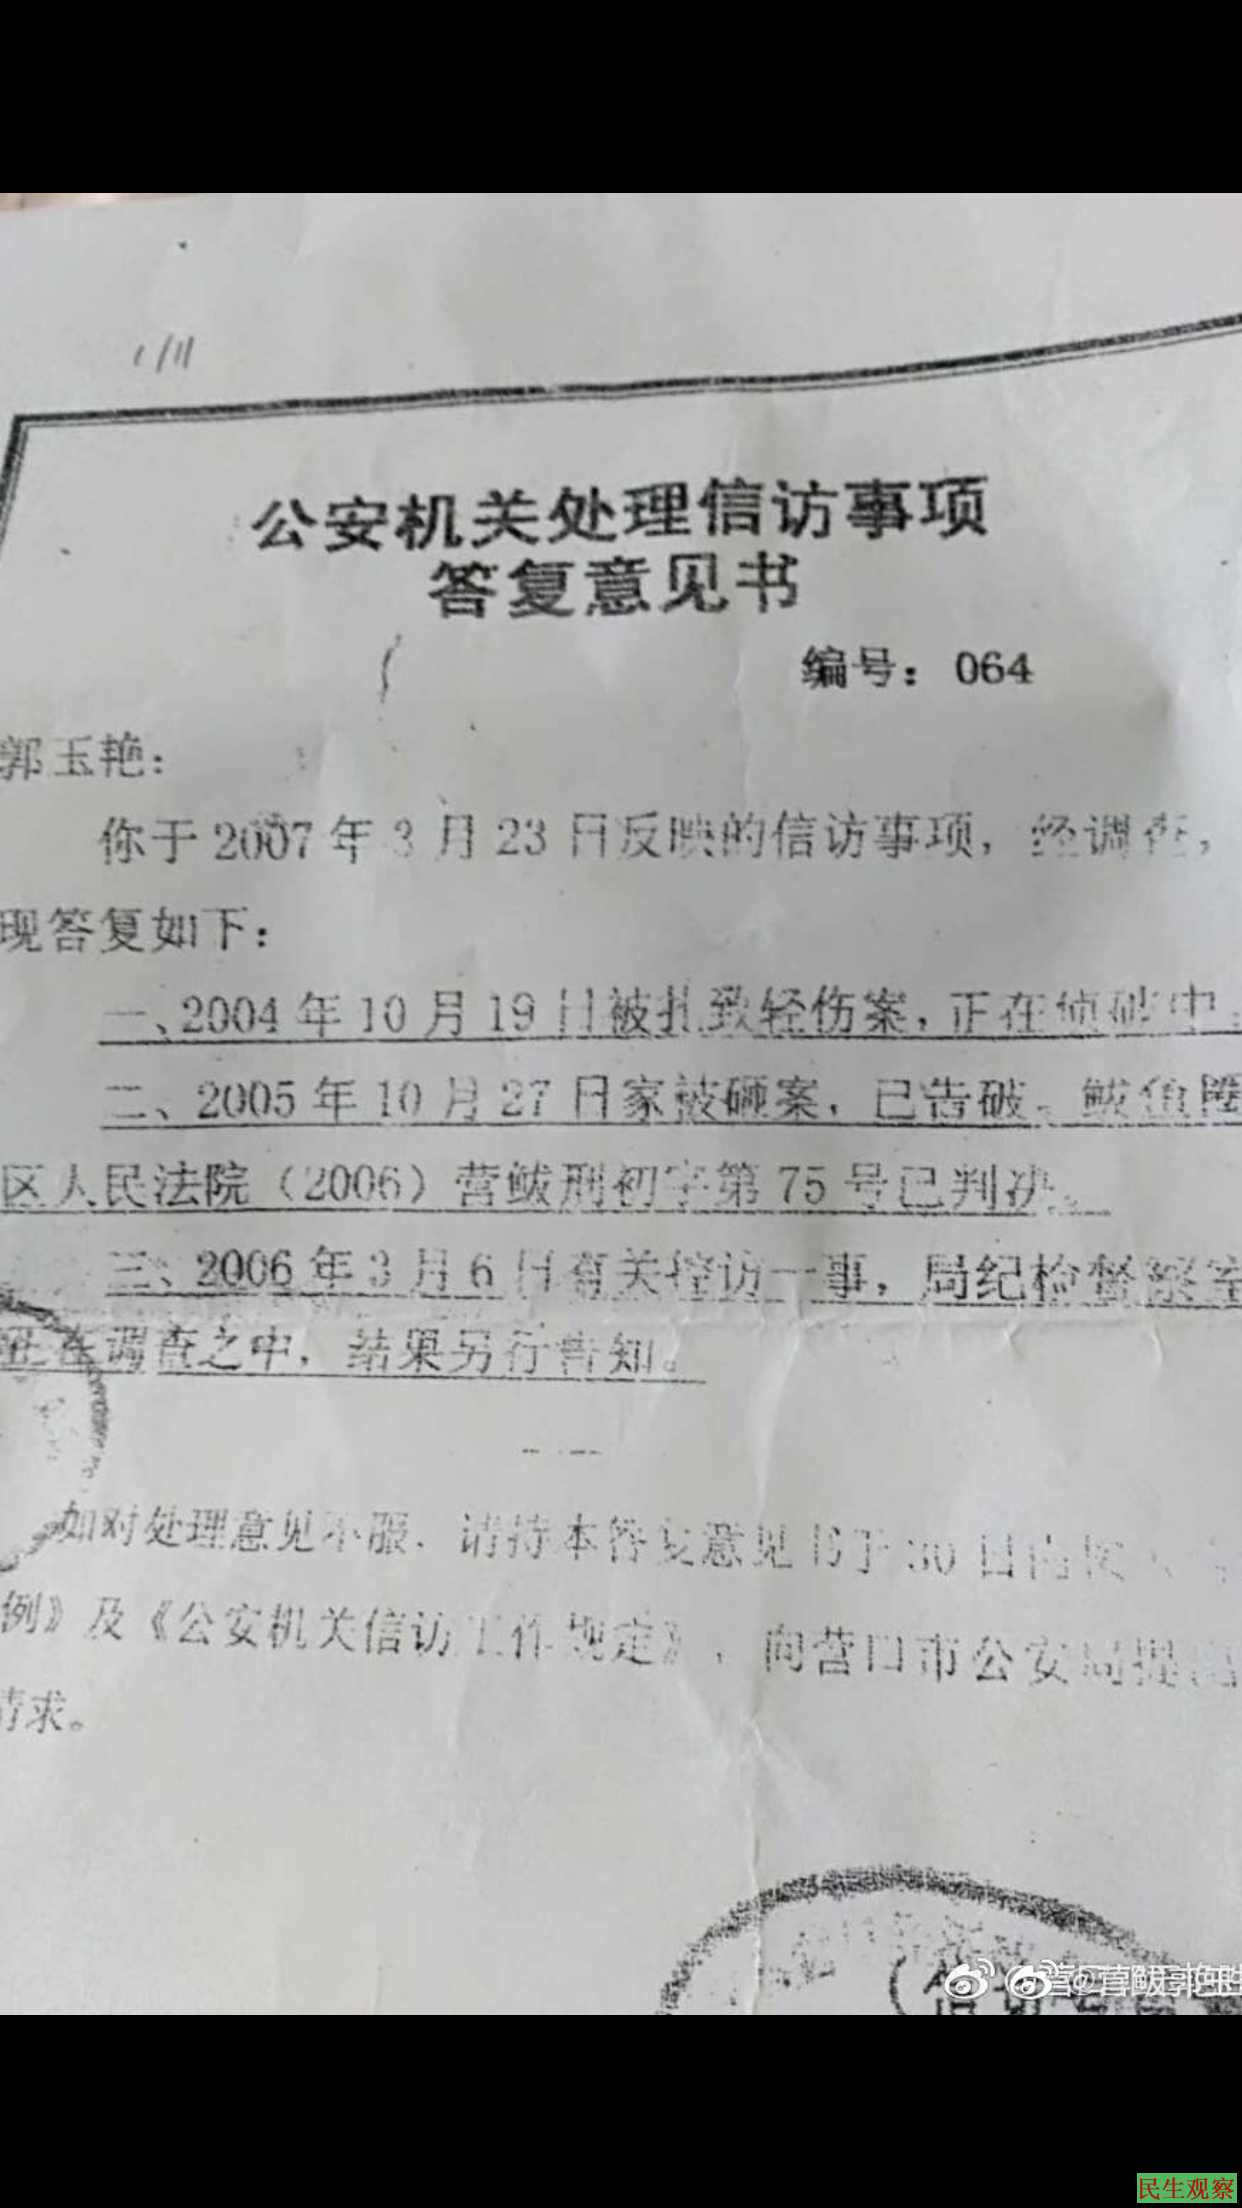 1/11
公安机关处理信访事项
答复意见书
编号：064
郭玉艳：
你于2007年3月23日反映的信访事项，经调查，
现答复如下：
一、2004年10月19日被扎致轻伤案，正在侦破中
二、2005年10月27日家被砸案，已告破。鲅鱼圈
区人民法院（2006）营鲅刑初字第75号已判决。
三、2006年3月6日有关控访一事，局纪检督察室
正在调查之中，结果另行告知。
如对处理意见不服、请持本答复意见书于30日内
例》及《公安机关信访工作规定》，向营口市公安局提
请求。
民生观察